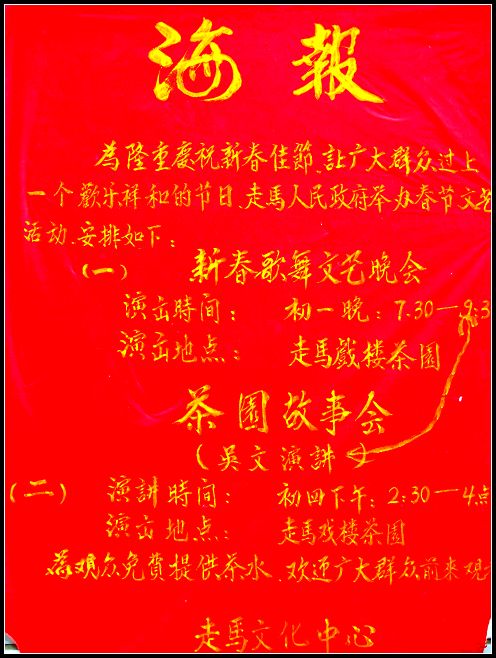 海報
為隆重慶祝新春佳節、让广大群众过上
一个歡乐祥和的节日、走馬人民政府举办春节文艺
活动、安排如下：
(一) 新春歌舞文艺晚会
演出時間： 初一晚：7.30—9:3
演出地点： 走馬戲楼茶園
茶園故事会
(吳文演講)
(二) 演講時間： 初四下午：2:30—4点
演出地点： 走馬戏楼茶园
為观众免費提供茶水、欢迎广大群众前来观
走馬文化中心